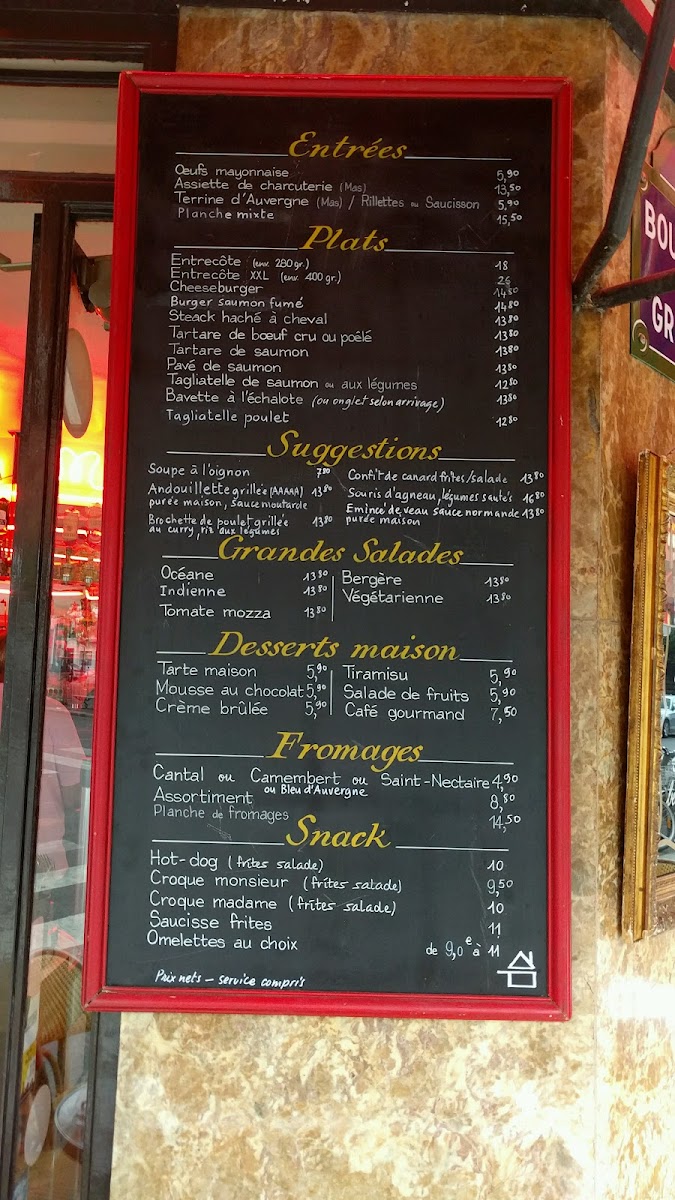 Entrées
Œufs mayonnaise 5,90
Assiette de charcuterie (Mas) 13,50
Terrine d'Auvergne (Mas) / Rillettes ou Saucisson 5,90
Planche mixte 15,50
Plats
Entrecôte (env. 280 gr.) 18
Entrecôte XXL (env. 400 gr.) 26
Cheeseburger 1480
Burger saumon fumé 1480
Steack haché à cheval 1380
Tartare de bœuf cru ou poêlé 1380
Tartare de saumon 1380
Pavé de saumon 1380
Tagliatelle de saumon ou aux légumes 1280
Bavette à l'échalote (ou onglet selon arrivage) 1380
Tagliatelle poulet 1280
Suggestions
Soupe à l'oignon 780
Andouillette grillée (AAAAA) 1380
purée maison, sauce moutarde
Brochette de poulet grillée 1380
au curry, riz aux légumes
Confit de canard frites/salade 1380
Souris d'agneau, légumes sautés 1680
Emincé de veau sauce normande 1380
purée maison
Grandes Salades
Océane 1380
Indienne 1380
Tomate mozza 1380
Bergère 1380
Végétarienne 1380
Desserts maison
Tarte maison 5,90
Mousse au chocolat 5,90
Crème brûlée 5,90
Tiramisu 5,90
Salade de fruits 5,90
Café gourmand 7,50
Fromages
Cantal ou Camembert ou Saint-Nectaire 4,90
ou Bleu d'Auvergne
Assortiment 8,80
Planche de fromages 14,50
Snack
Hot-dog (frites salade) 10
Croque monsieur (frites salade) 9,50
Croque madame (frites salade) 10
Saucisse frites 11
Omelettes au choix de 9,0€ à 11
Prix nets – service compris
BOU
GR